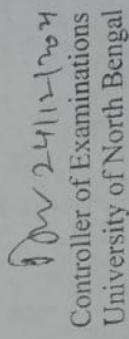 24/12/2021
Controller of Examinations
University of North Bengal